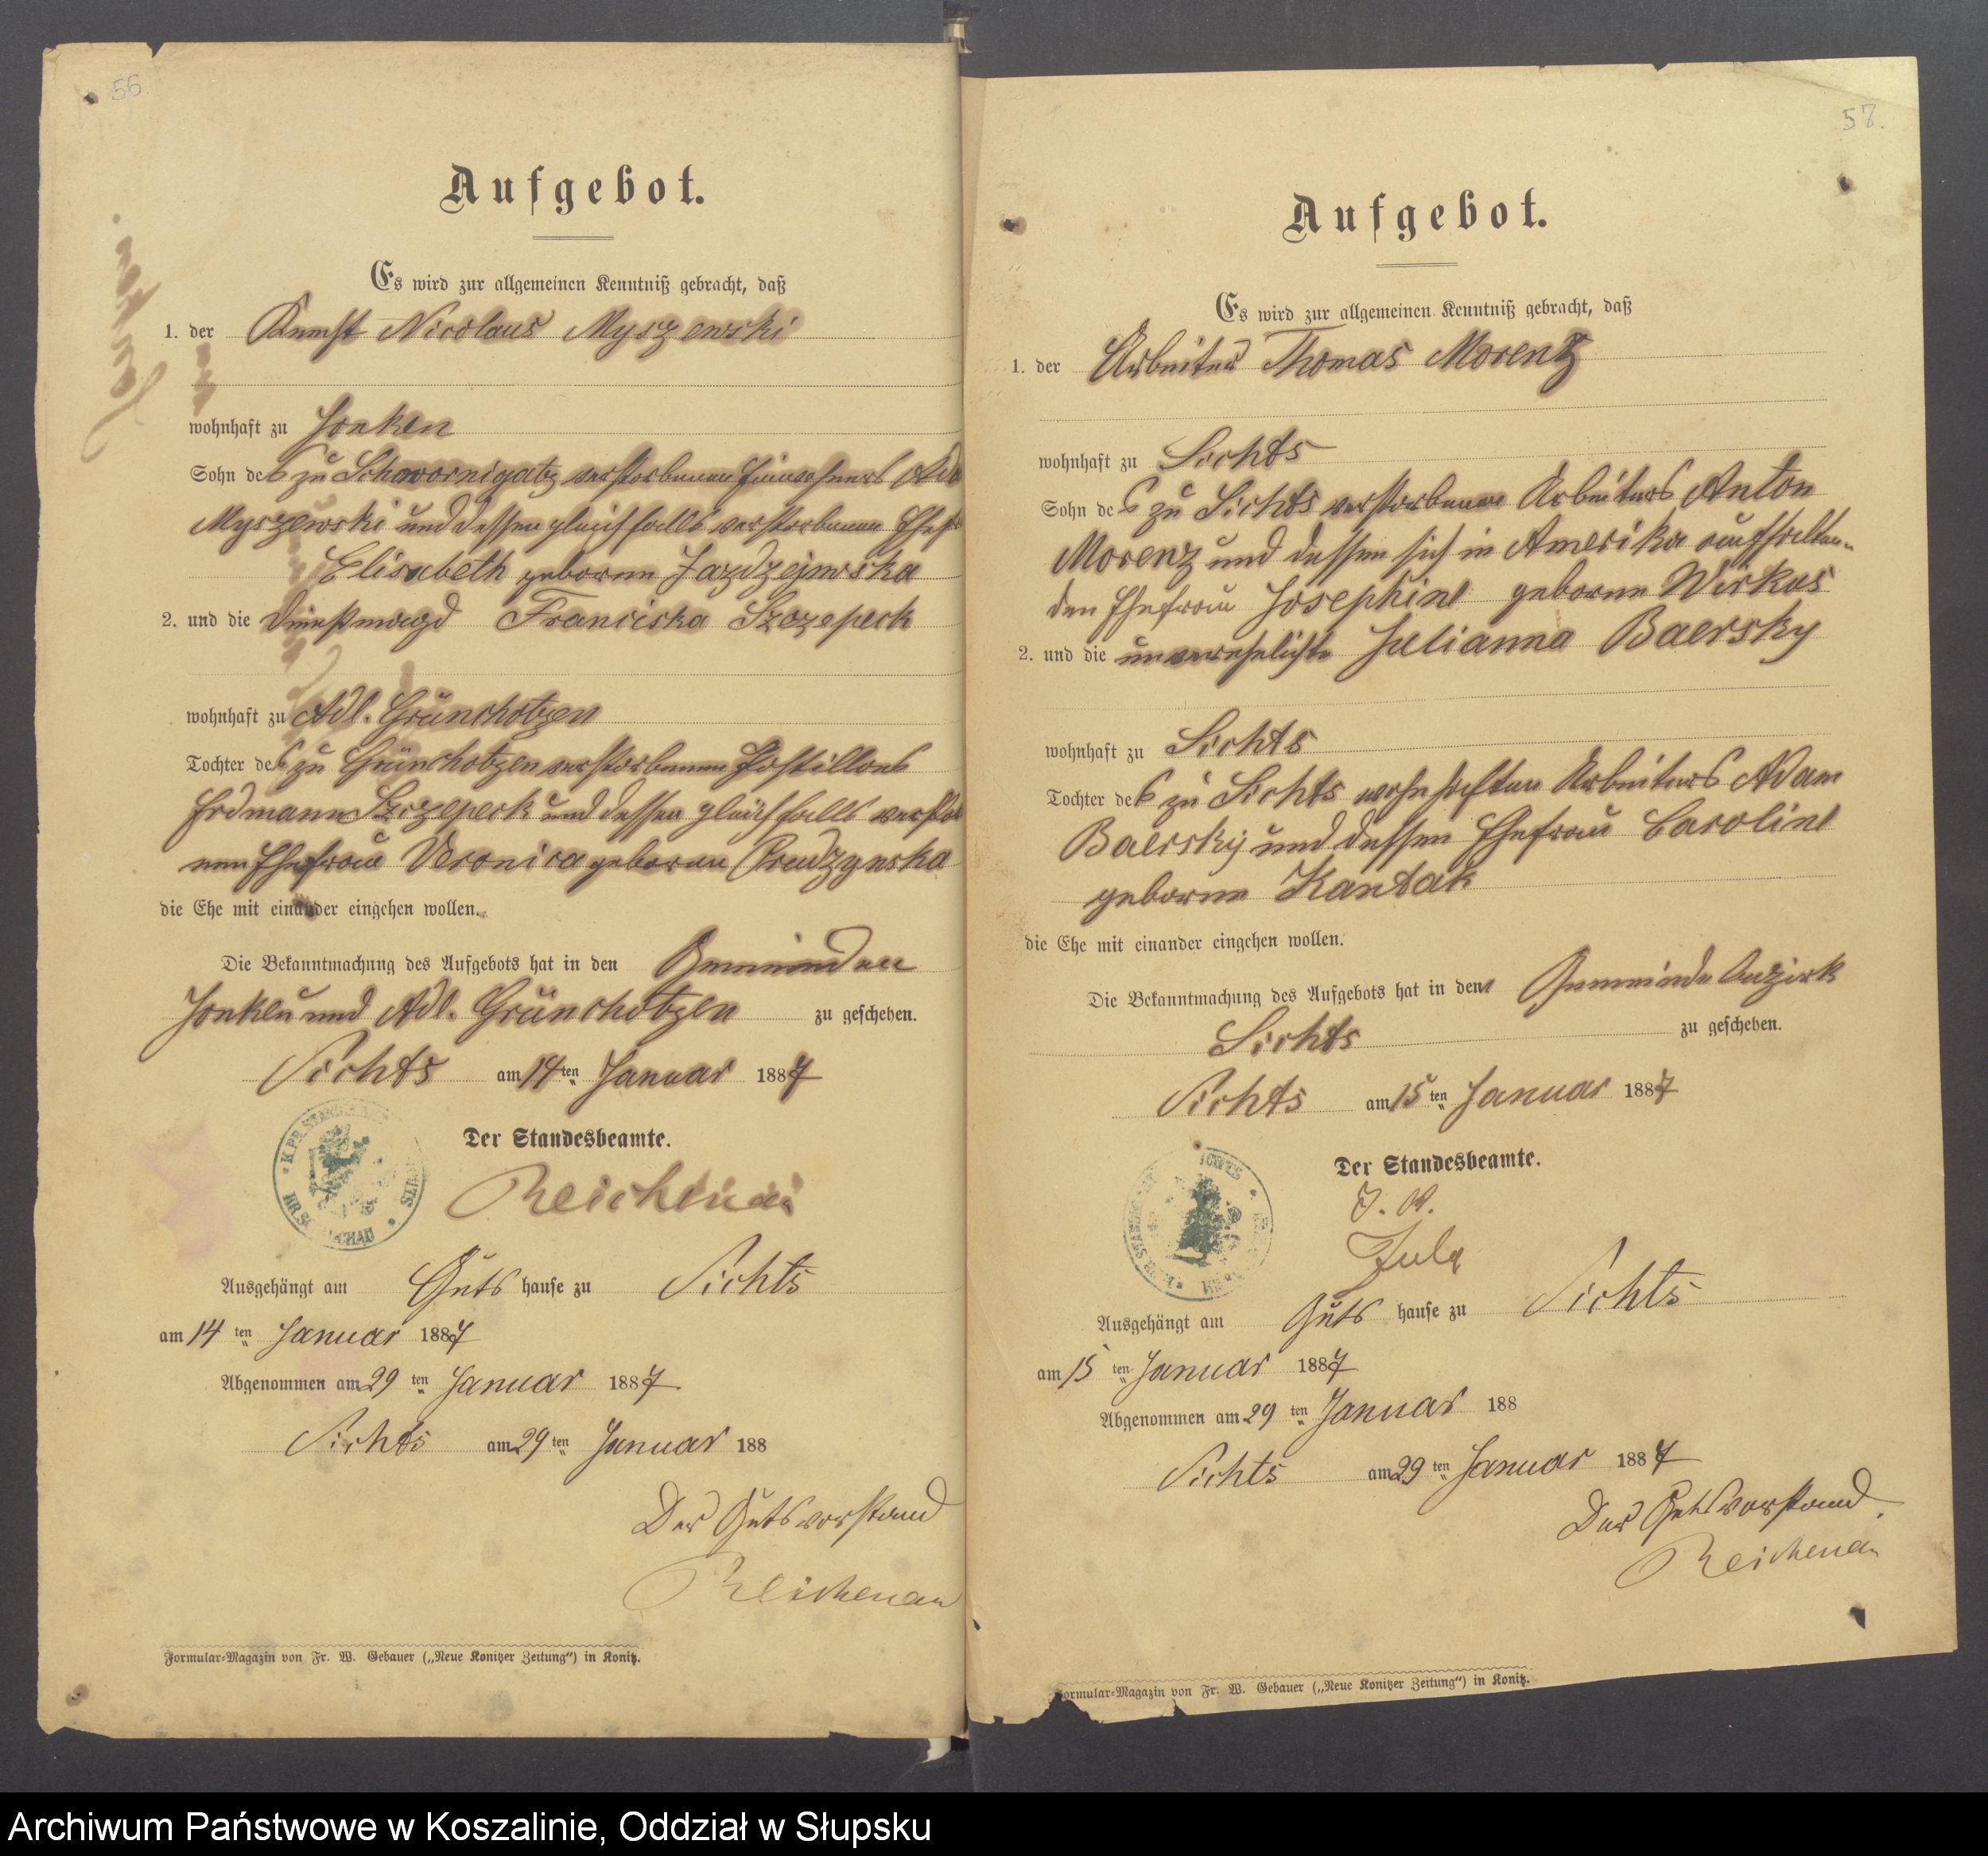 56
Aufgebot.
Es wird zur allgemeinen Kenntniß gebracht, daß
1. der Knecht Nicolaus Myszewski
wohnhaft zu Jonken
Sohn des zu Schwornigatz verstorbenen Einwohners
Myszewski und dessen gleichfalls verstorbenen
Elisabeth geborne Jazdzejewska
2. und die Dienstmagd Franciska Szczepeck
wohnhaft zu Adl. Grünchotzen
Tochter des zu Grünchotzen verstorbenen Postillons
Erdmann Szczepeck und dessen gleichfalls
nen Ehefrau Veronica geborne
die Ehe mit einander eingehen wollen.
Die Bekanntmachung des Aufgebots hat in den Gemeinden
Jonken und Adl. Grünchotzen zu geschehen.
Sichts am 14ten Januar 1887
Der Standesbeamte.
Reichenau
Ausgehängt am Guts hause zu Sichts
am 14ten Januar 1887
Abgenommen am 29ten Januar 1887
Sichts am 29ten Januar 188
Der Gutsvorstand
Reichenau
Formular-Magazin von Fr. W. Gebauer („Neue Konitzer Zeitung“) in Konitz.
57.
Aufgebot.
Es wird zur allgemeinen Kenntniß gebracht, daß
1. der Arbeiter Thomas Morentz
wohnhaft zu Sichts
Sohn des zu Sichts verstorbenen Arbeiters Anton
Morenz und dessen sich in Amerika aufhalten-
den Ehefrau Josephine geborne Wirkus
2. und die unverehelichte Julianna Baersky
wohnhaft zu Sichts
Tochter des zu Sichts wohnhaften Arbeiters Adam
Baersky und dessen Ehefrau Caroline
geborne Kantak
die Ehe mit einander eingehen wollen.
Die Bekanntmachung des Aufgebots hat in dem Gemeindebezirk
Sichts zu geschehen.
Sichts am 15ten Januar 1887
Der Standesbeamte.
Ausgehängt am Guts hause zu Sichts
am 15ten Januar 1887
Abgenommen am 29ten Januar 188
Sichts am 29ten Januar 1887
Der Gutsvorstand
Reichenau
Formular-Magazin von Fr. W. Gebauer („Neue Konitzer Zeitung“) in Konitz.
Archiwum Państwowe w Koszalinie, Oddział w Słupsku